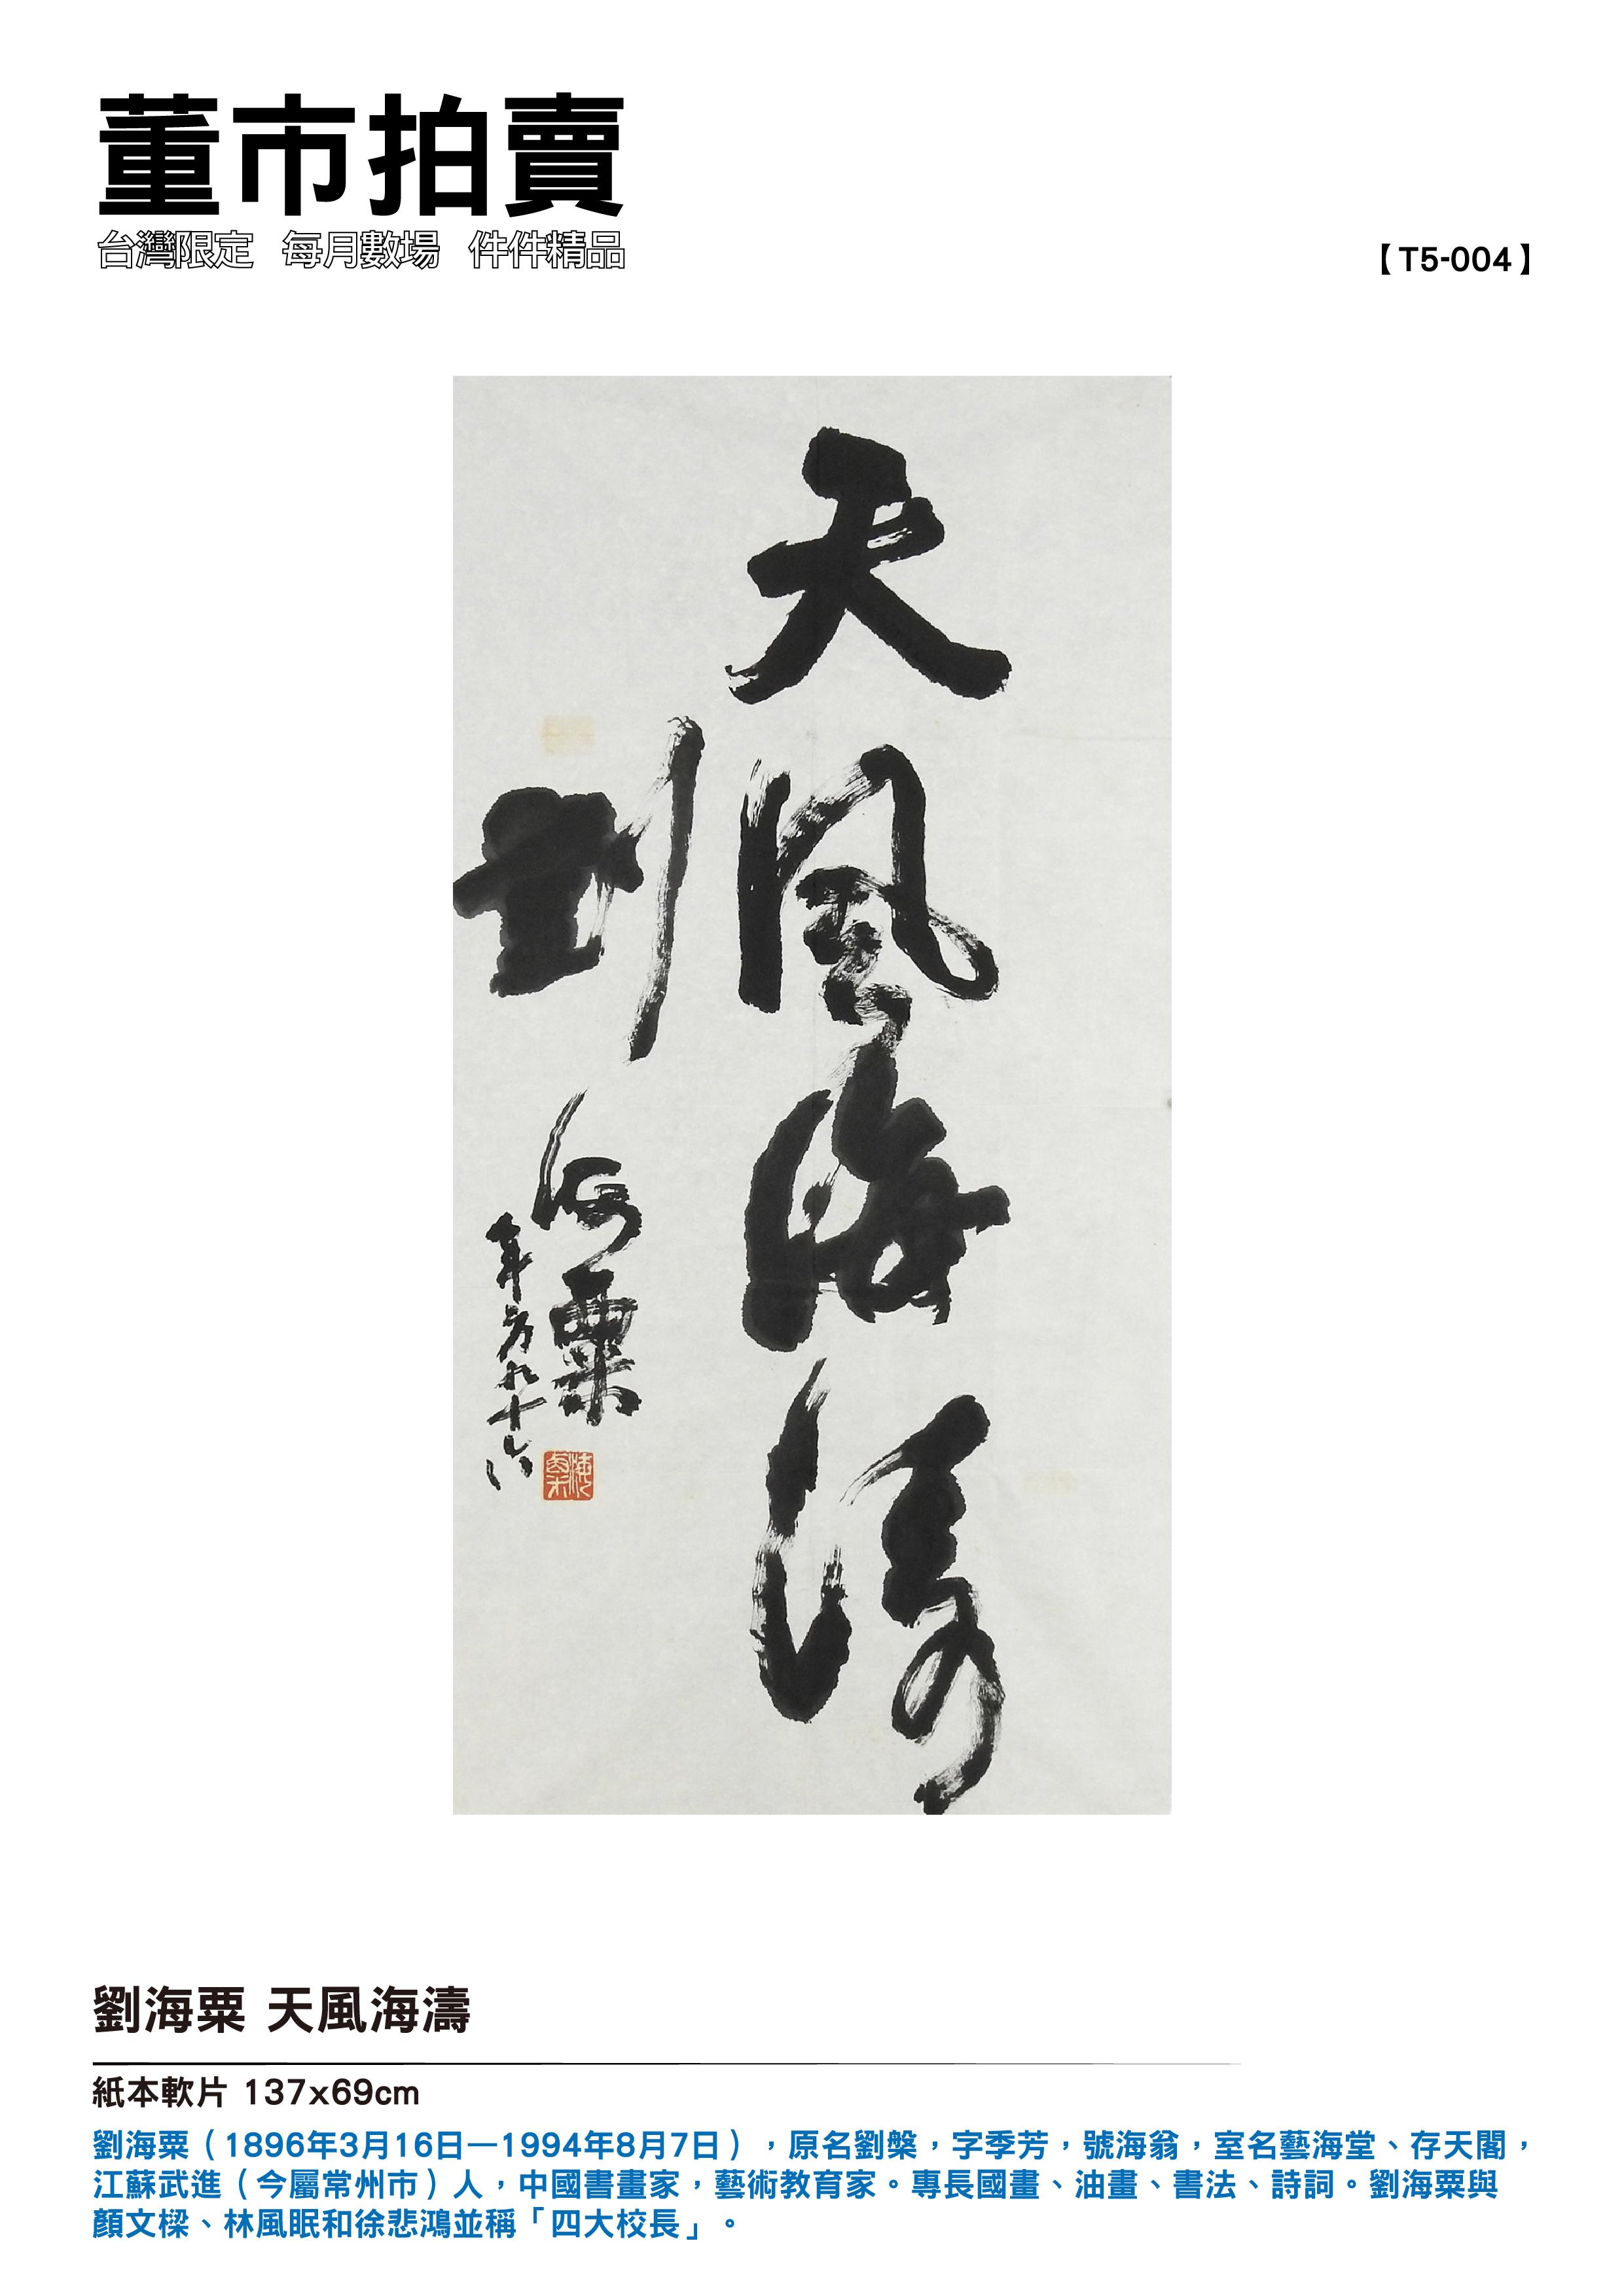 董市拍賣
台灣限定 每月數場 件件精品
【T5-004】
天風海濤
劉海粟
年方九十六
海粟
劉海粟 天風海濤
紙本軟片 137x69cm
劉海粟（1896年3月16日—1994年8月7日），原名劉槃，字季芳，號海翁，室名藝海堂、存天閣，
江蘇武進（今屬常州市）人，中國書畫家，藝術教育家。專長國畫、油畫、書法、詩詞。劉海粟與
顏文樑、林風眠和徐悲鴻並稱「四大校長」。